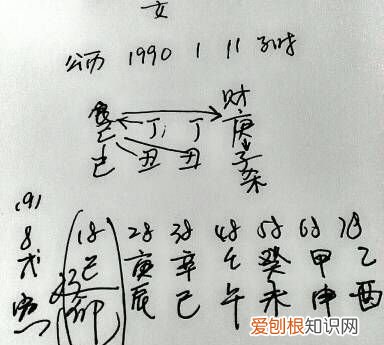 女
公历 1990 1 11 子时
食 财
己 丁 丁 庚
巳 丑 丑 子
癸
(9)
8 18 28 38 48 58 68 78
戊 己 庚 辛 壬 癸 甲 乙
寅 卯 辰 巳 午 未 申 酉
爱刨根知识网